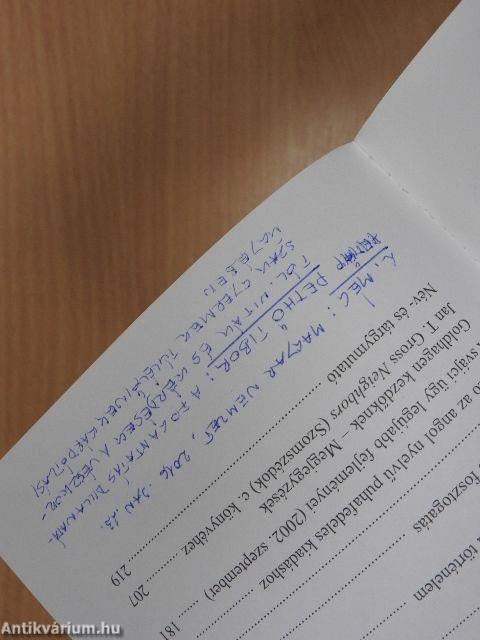 történelem
fosztogatás
az angol nyelvű puhafedeles kiadáshoz
svájci ügy legújabb fejleményei (2002. szeptember) 181
Goldhagen kezdőknek – Megjegyzések
Jan T. Gross Neighbors (Szomszédok) c. könyvéhez 207
Név- és tárgymutató 219
L. MÉG: MAGYAR NEMZET, 2016. JAN. 23.
PETHŐ TIBOR: A FOGANTATÁS PILLANATÁ-
TÓL. VITÁK ÉS KÉRDÉSEK A VÉSZKOR-
SZAK GYERMEK TÚLÉLŐINEK KÁRPÓTLÁSI
Antikvárium.hu